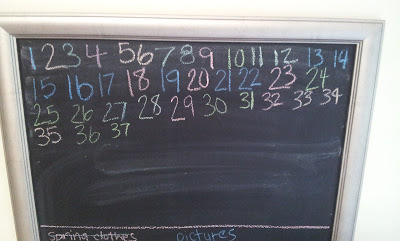 1 2 3 4 5 6 7 8 9 10 11 12 13 14
15 16 17 18 19 20 21 22 23 24
25 26 27 28 29 30 31 32 33 34
35 36 37
spring clothes pictures